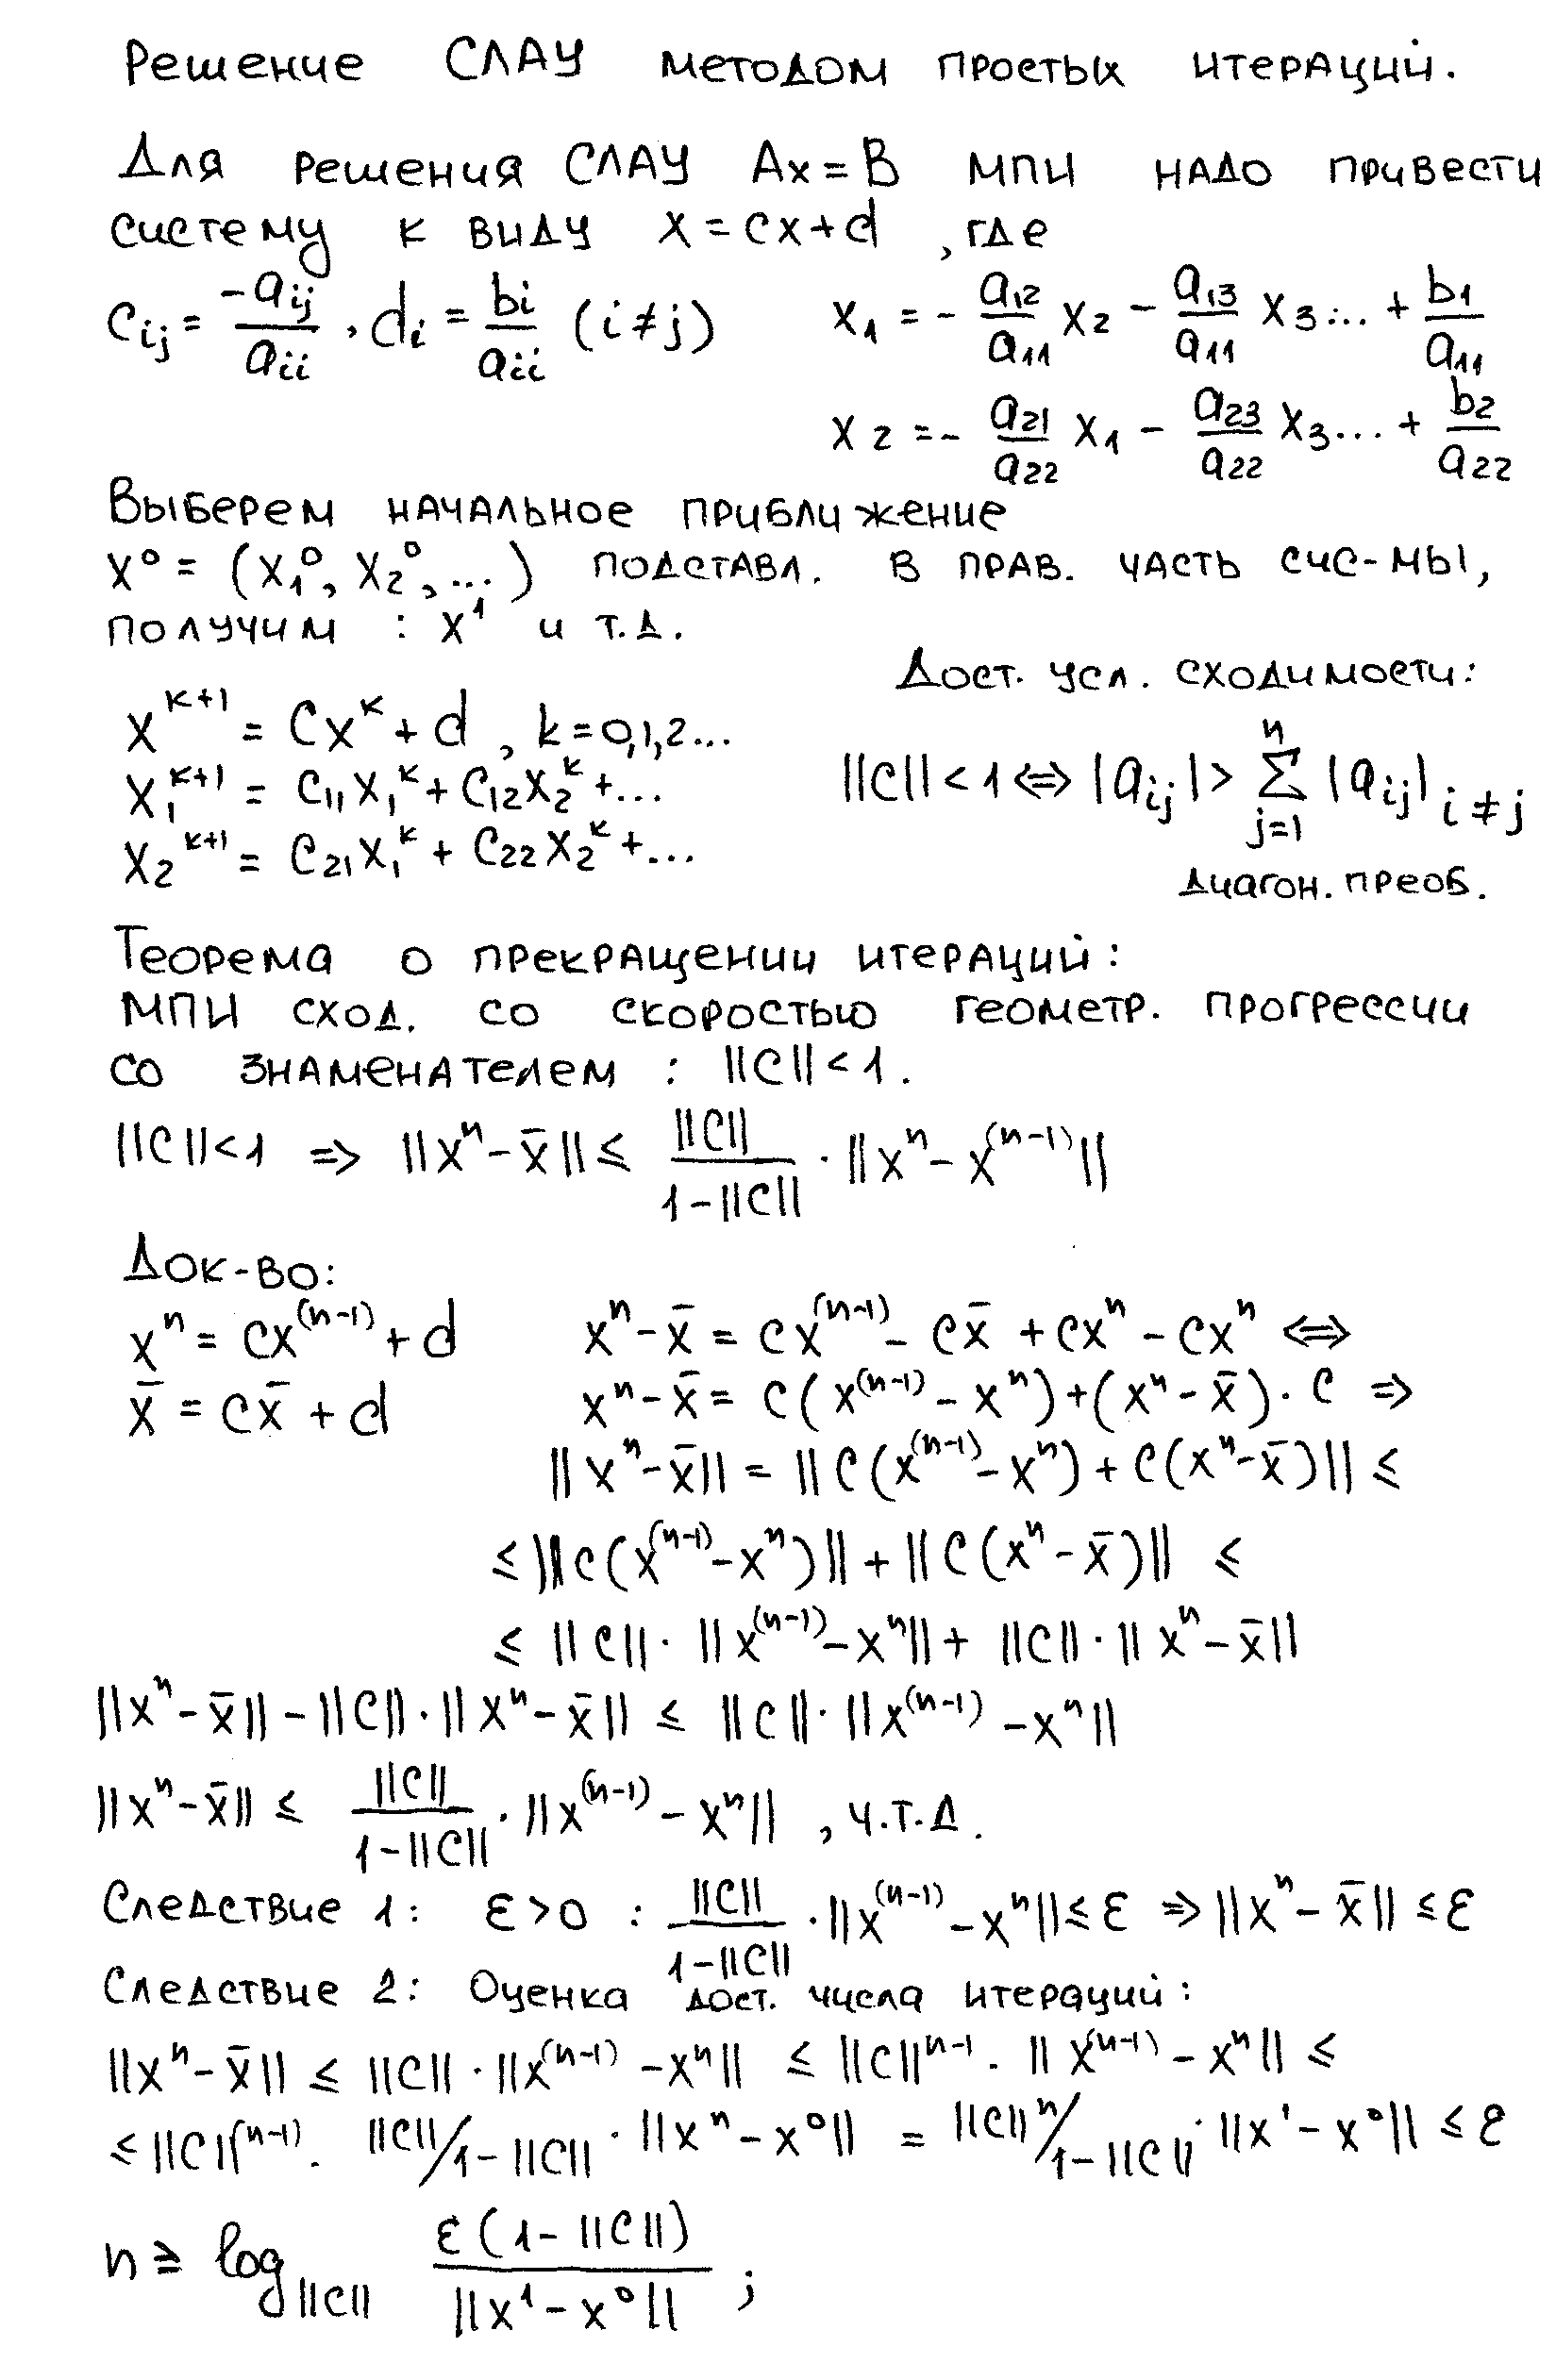 Решение СЛАУ методом простых итераций.
Для решения СЛАУ Ax = B МПИ надо привести
систему к виду x = cx + d , где
c_ij = -a_ij/a_ii , d_i = b_i/a_ii (i ≠ j)
x_1 = - a_12/a_11 x_2 - a_13/a_11 x_3 ... + b_1/a_11
x_2 = - a_21/a_22 x_1 - a_23/a_22 x_3 ... + b_2/a_22
Выберем начальное приближение
x^0 = (x_1^0, x_2^0, ...) подставл. в прав. часть сис-мы,
получим : x^1 и т.д.
x^{k+1} = Cx^k + d , k = 0,1,2...
x_1^{k+1} = c_11 x_1^k + c_12 x_2^k + ...
x_2^{k+1} = c_21 x_1^k + c_22 x_2^k + ...
Дост. усл. сходимости:
||C|| < 1 ⇔ |a_ij| > ∑_{j=1}^{n} |a_ij| i ≠ j
диагон. преоб.
Теорема о прекращении итераций:
МПИ сход. со скоростью геометр. прогрессии
со знаменателем : ||C|| < 1.
||C|| < 1 ⇒ ||x^n - x̄|| ≤ ||C||/(1-||C||) · ||x^n - x^{(n-1)}||
Док-во:
x^n = cx^{(n-1)} + d
x̄ = cx̄ + d
x^n - x̄ = cx^{(n-1)} - cx̄ + cx^n - cx^n ⇔
x^n - x̄ = c(x^{(n-1)} - x^n) + (x^n - x̄) · c ⇒
||x^n - x̄|| = ||c(x^{(n-1)} - x^n) + c(x^n - x̄)|| ≤
≤ ||c(x^{(n-1)} - x^n)|| + ||c(x^n - x̄)|| ≤
≤ ||c|| · ||x^{(n-1)} - x^n|| + ||c|| · ||x^n - x̄||
||x^n - x̄|| - ||c|| · ||x^n - x̄|| ≤ ||c|| · ||x^{(n-1)} - x^n||
||x^n - x̄|| ≤ ||c||/(1-||c||) · ||x^{(n-1)} - x^n|| , ч.т.д.
Следствие 1: ε > 0 : ||c||/(1-||c||) · ||x^{(n-1)} - x^n|| ≤ ε ⇒ ||x^n - x̄|| ≤ ε
Следствие 2: Оценка дост. числа итераций:
||x^n - x̄|| ≤ ||c|| · ||x^{(n-1)} - x^n|| ≤ ||c||^{n-1} · ||x^{(n-1)} - x^n|| ≤
≤ ||c||^{(n-1)} · ||c||/1-||c|| · ||x^n - x^0|| = ||c||^n/1-||c|| · ||x^1 - x^0|| ≤ ε
n ≥ log_{||c||} ε(1-||c||)/||x^1 - x^0|| ;